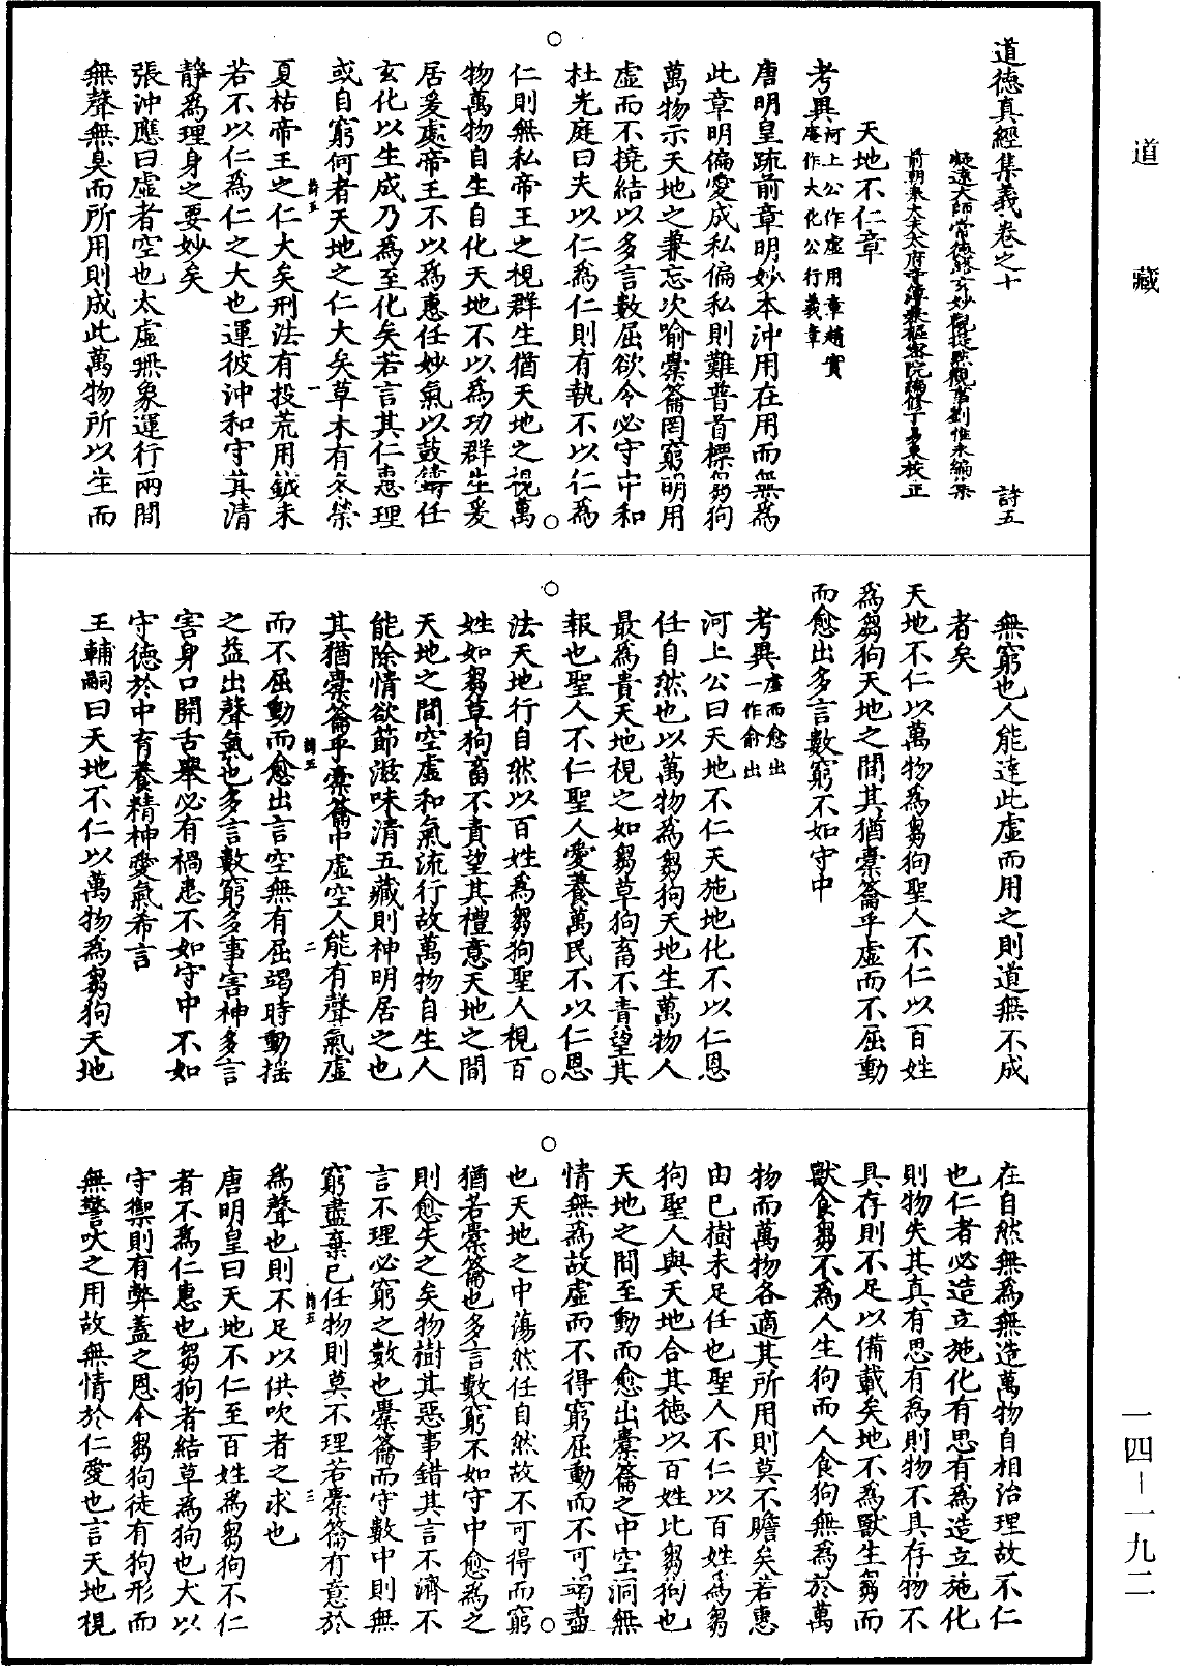 道藏
道德真經集義卷之十　詩五
凝遠大師常德路玄妙觀提點觀事劉惟永編集
前朝奉大夫太府寺簿兼樞密院編修丁易東校正
天地不仁章
考異河上公作虛用章趙實
庵作大化公行義章
唐明皇疏前章明妙本沖用在用而無為
此章明偏愛成私偏私則難普首標芻狗
萬物示天地之兼忘次喻橐籥罔窮明用
虛而不撓結以多言數屈欲令必守中和
杜光庭曰夫以仁為仁則有執不以仁為
仁則無私帝王之視群生猶天地之視萬
物萬物自生自化天地不以為功群生爰
居爰處帝王不以為惠任妙氣以鼓鑄任
玄化以生成乃為至化矣若言其仁惠理
或自窮何者天地之仁大矣草木有冬榮
詩五　一
夏枯帝王之仁大矣刑法有投荒用鉞未
若不以仁為仁之大也運彼沖和守其清
靜為理身之要妙矣
張沖應曰虛者空也太虛無象運行兩間
無聲無臭而所用則成此萬物所以生而
無窮也人能達此虛而用之則道無不成
者矣
天地不仁以萬物為芻狗聖人不仁以百姓
為芻狗天地之間其猶橐籥乎虛而不屈動
而愈出多言數窮不如守中
考異虛而愈出
一作俞出
河上公曰天地不仁天施地化不以仁恩
任自然也以萬物為芻狗天地生萬物人
最為貴天地視之如芻草狗畜不責望其
報也聖人不仁聖人愛養萬民不以仁恩
法天地行自然以百姓為芻狗聖人視百
姓如芻草狗畜不責望其禮意天地之間
天地之間空虛和氣流行故萬物自生人
能除情欲節滋味清五藏則神明居之也
其猶橐籥乎橐籥中虛空人能有聲氣虛
詩五　二
而不屈動而愈出言空無有屈竭時動搖
之益出聲氣也多言數窮多事害神多言
害身口開舌舉必有禍患不如守中不如
守德於中育養精神愛氣希言
王輔嗣曰天地不仁以萬物為芻狗天地
在自然無為無造萬物自相治理故不仁
也仁者必造立施化有思有為造立施化
則物失其真有思有為則物不具存物不
具存則不足以備載矣地不為獸生芻而
獸食芻不為人生狗而人食狗無為於萬
物而萬物各適其所用則莫不贍矣若惠
由已樹未足任也聖人不仁以百姓為芻
狗聖人與天地合其德以百姓比芻狗也
天地之間至動而愈出橐籥之中空洞無
情無為故虛而不得窮屈動而不可竭盡
也天地之中蕩然任自然故不可得而窮
猶若橐籥也多言數窮不如守中愈為之
則愈失之矣物樹其惡事錯其言不濟不
言不理必窮之數也橐籥而守數中則無
窮盡棄已任物則莫不理若橐籥有意於
詩五　三
為聲也則不足以供吹者之求也
唐明皇曰天地不仁至百姓為芻狗不仁
者不為仁惠也芻狗者結草為狗也犬以
守禦則有弊蓋之恩今芻狗徒有狗形而
無警吠之用故無情於仁愛也言天地視
一四－一九二